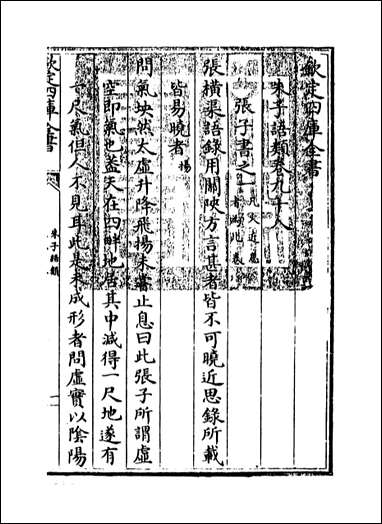 欽定四庫全書
朱子語類卷九十八
張子書之一
凡入近思者為此卷
張橫渠語錄用關陜方言甚者皆不可曉近思錄所載
皆易曉者 揚
問氣坱然太虛升降飛揚未嘗止息曰此張子所謂虛
空即氣也蓋天在四畔地居其中減得一尺地遂有
一尺氣但人不見耳此是未成形者問虛實以陰陽
欽定四庫全書
朱子語類
一